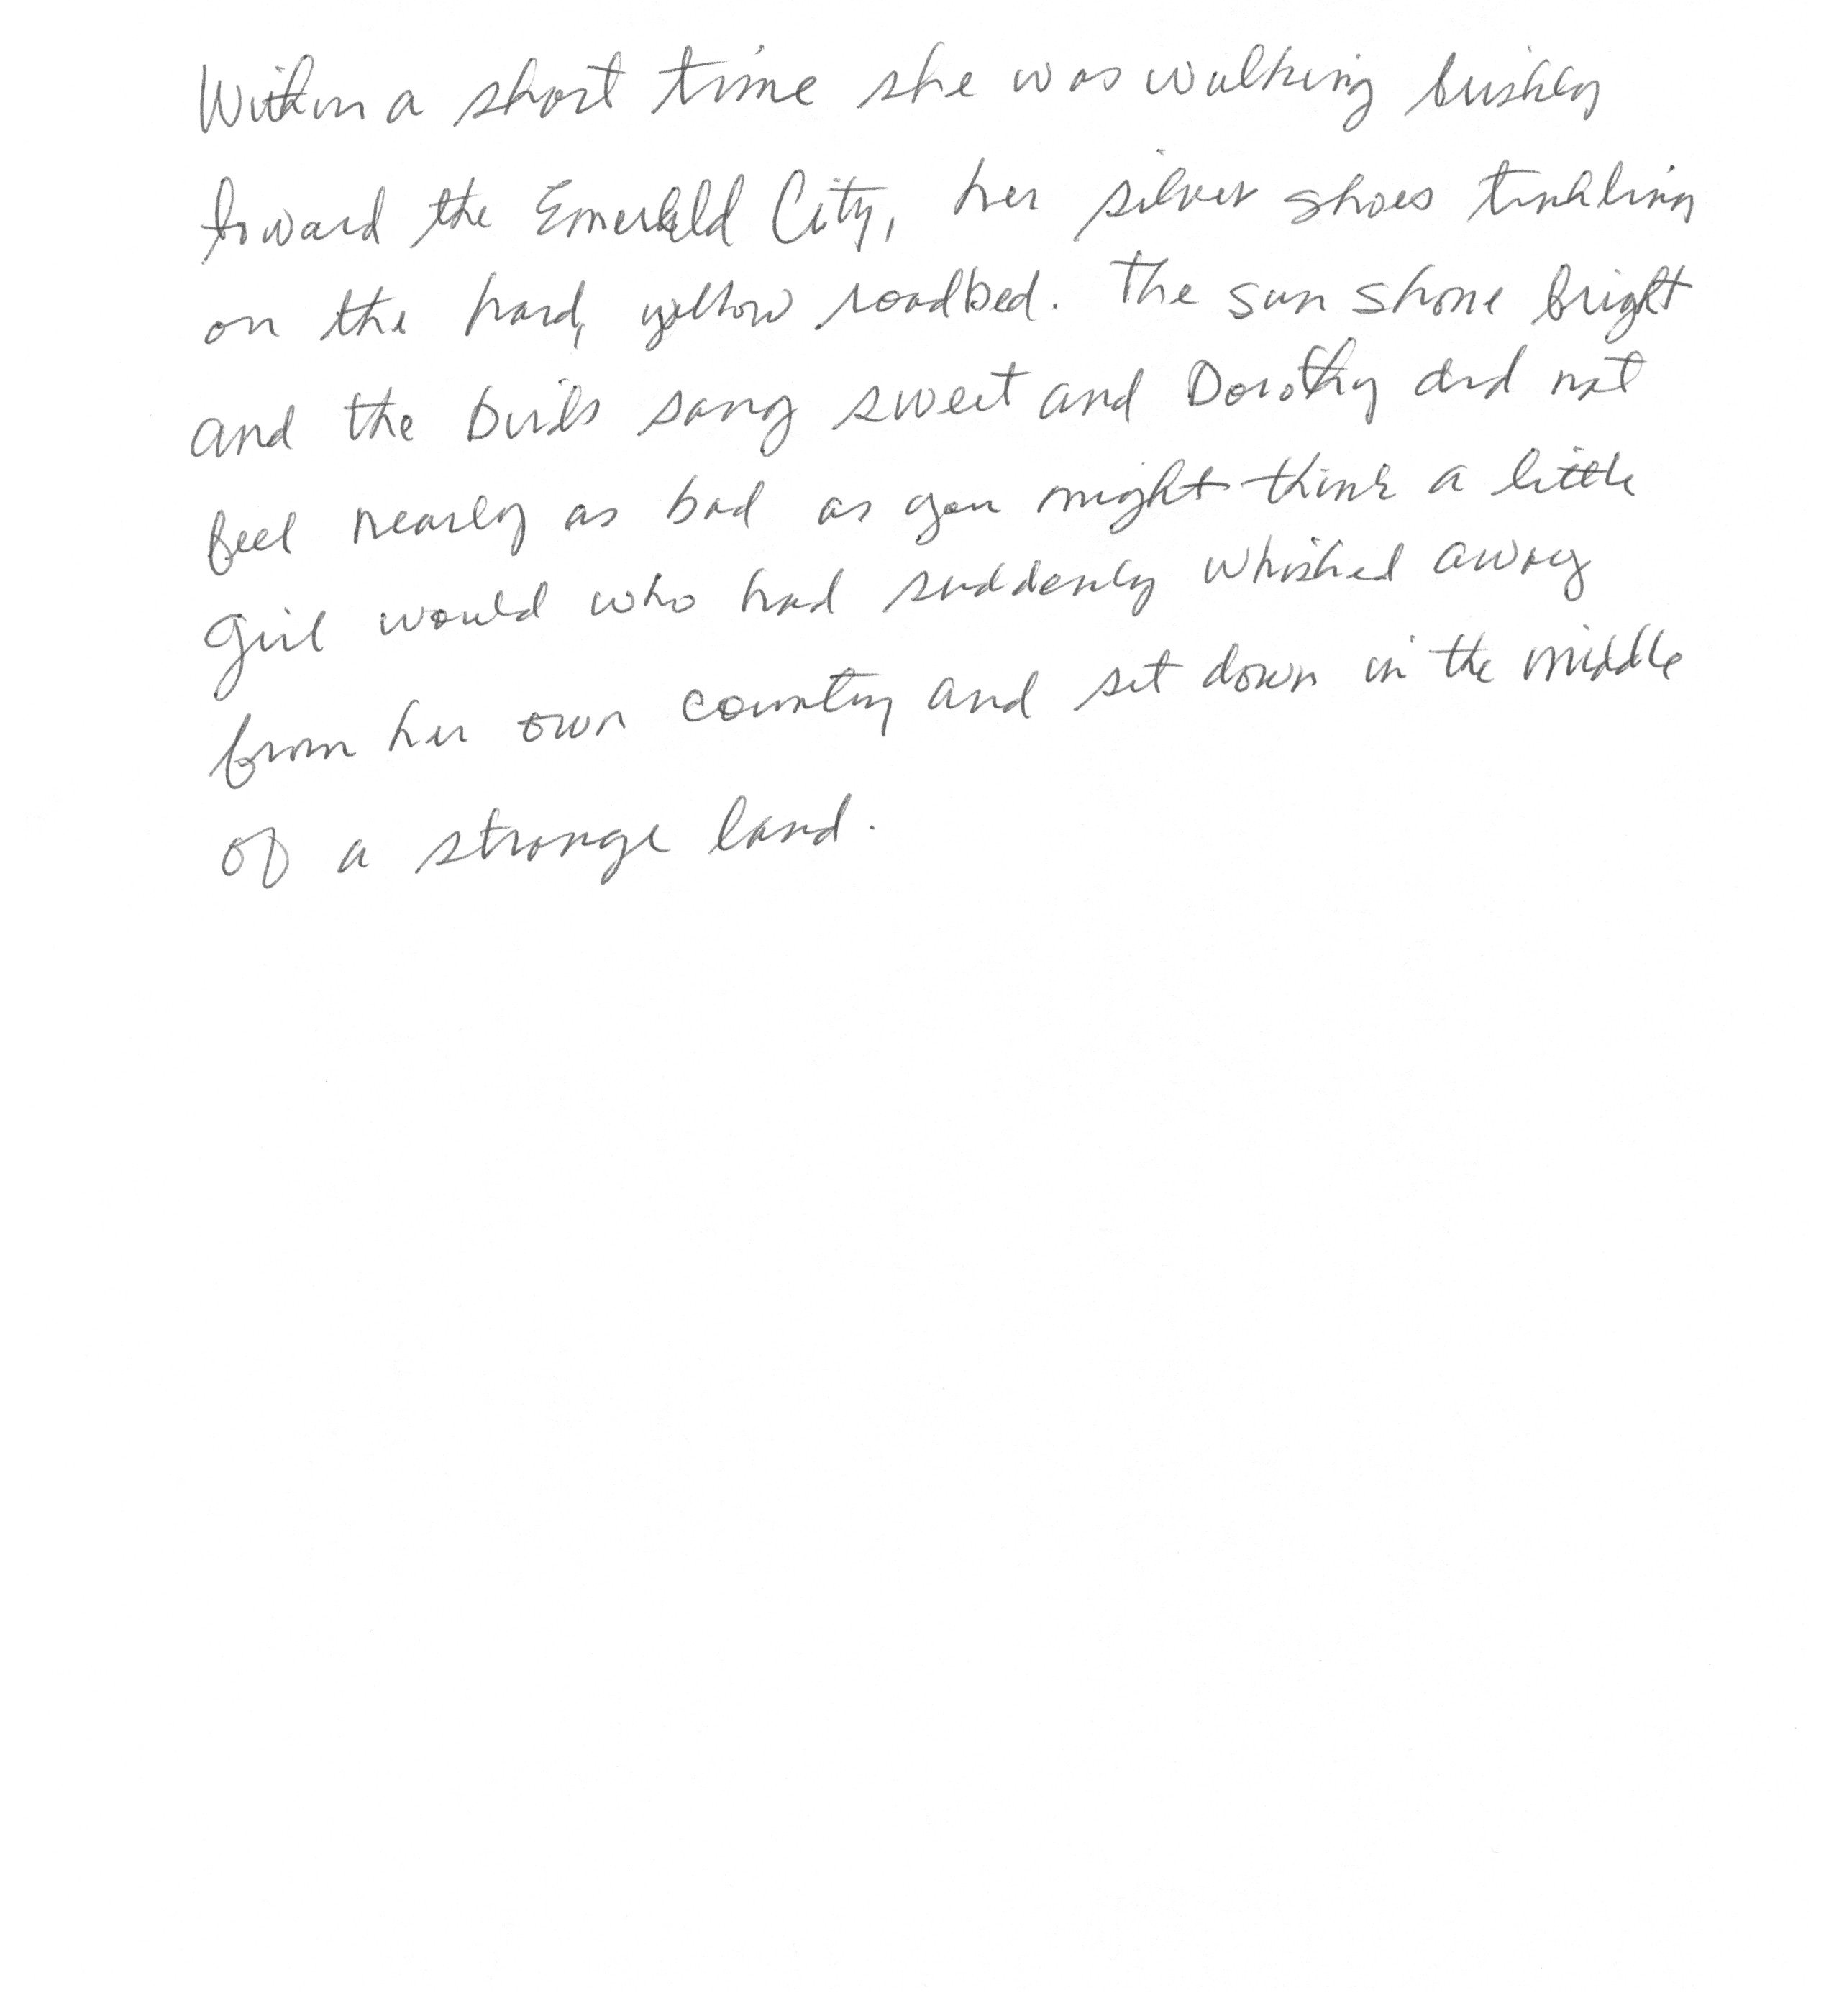 Within a short time she was walking briskly
toward the Emerald City, her silver shoes tinkling
on the hard, yellow roadbed. The sun shone bright
and the birds sang sweet and Dorothy did not
feel nearly as bad as you might think a little
girl would who had suddenly whisked away
from her own country and set down in the middle
of a strange land.